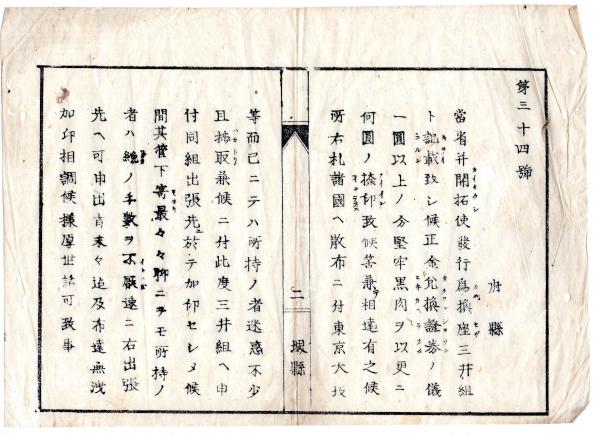 第三十四號
府縣
當省并開拓使發行爲換座三井組
ト記載致シ候正金兌換證券ノ儀
一圓以上ノ分堅牢黒肉ヲ以更ニ
何圓ノ捺印致候筈兼相達有之候
所右札諸國ヘ散布ニ付東京大坂
二
堺縣
等而已ニテハ所持ノ者迷惑不少
且揀取兼候ニ付此度三井組ヘ申
付同組出張先ニ於テ加印セシメ候
間其管下寄最々々聊ニテモ所持ノ
者ハ總ノ手數ヲ不厭速ニ右出張
先ヘ可申出旨末々迄及布達無洩
加印相調候樣厚世話可致事